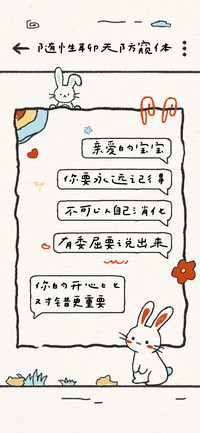 随性聊天防窥体
亲爱的宝宝
你要永远记得
不可以自己消化
有委屈要说出来
你的开心比
对错更重要